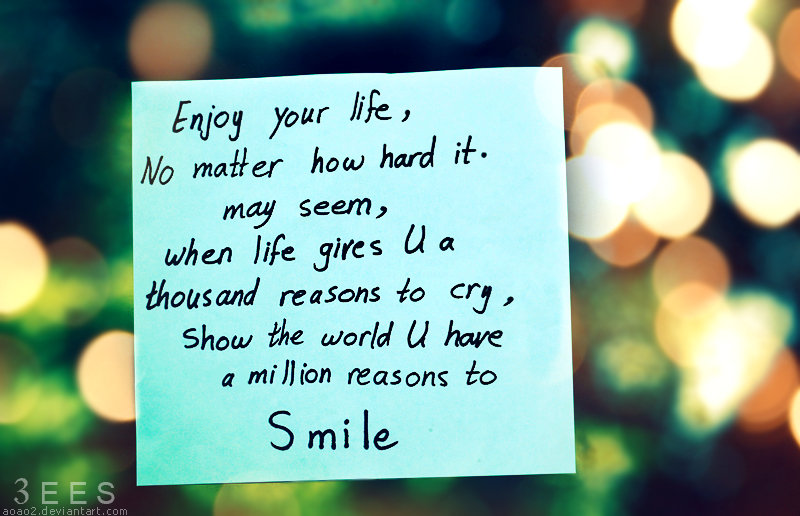 Enjoy your life,
No matter how hard it.
may seem,
when life gives U a
thousand reasons to cry,
Show the world U have
a million reasons to
Smile
3EES
aoao2.deviantart.com